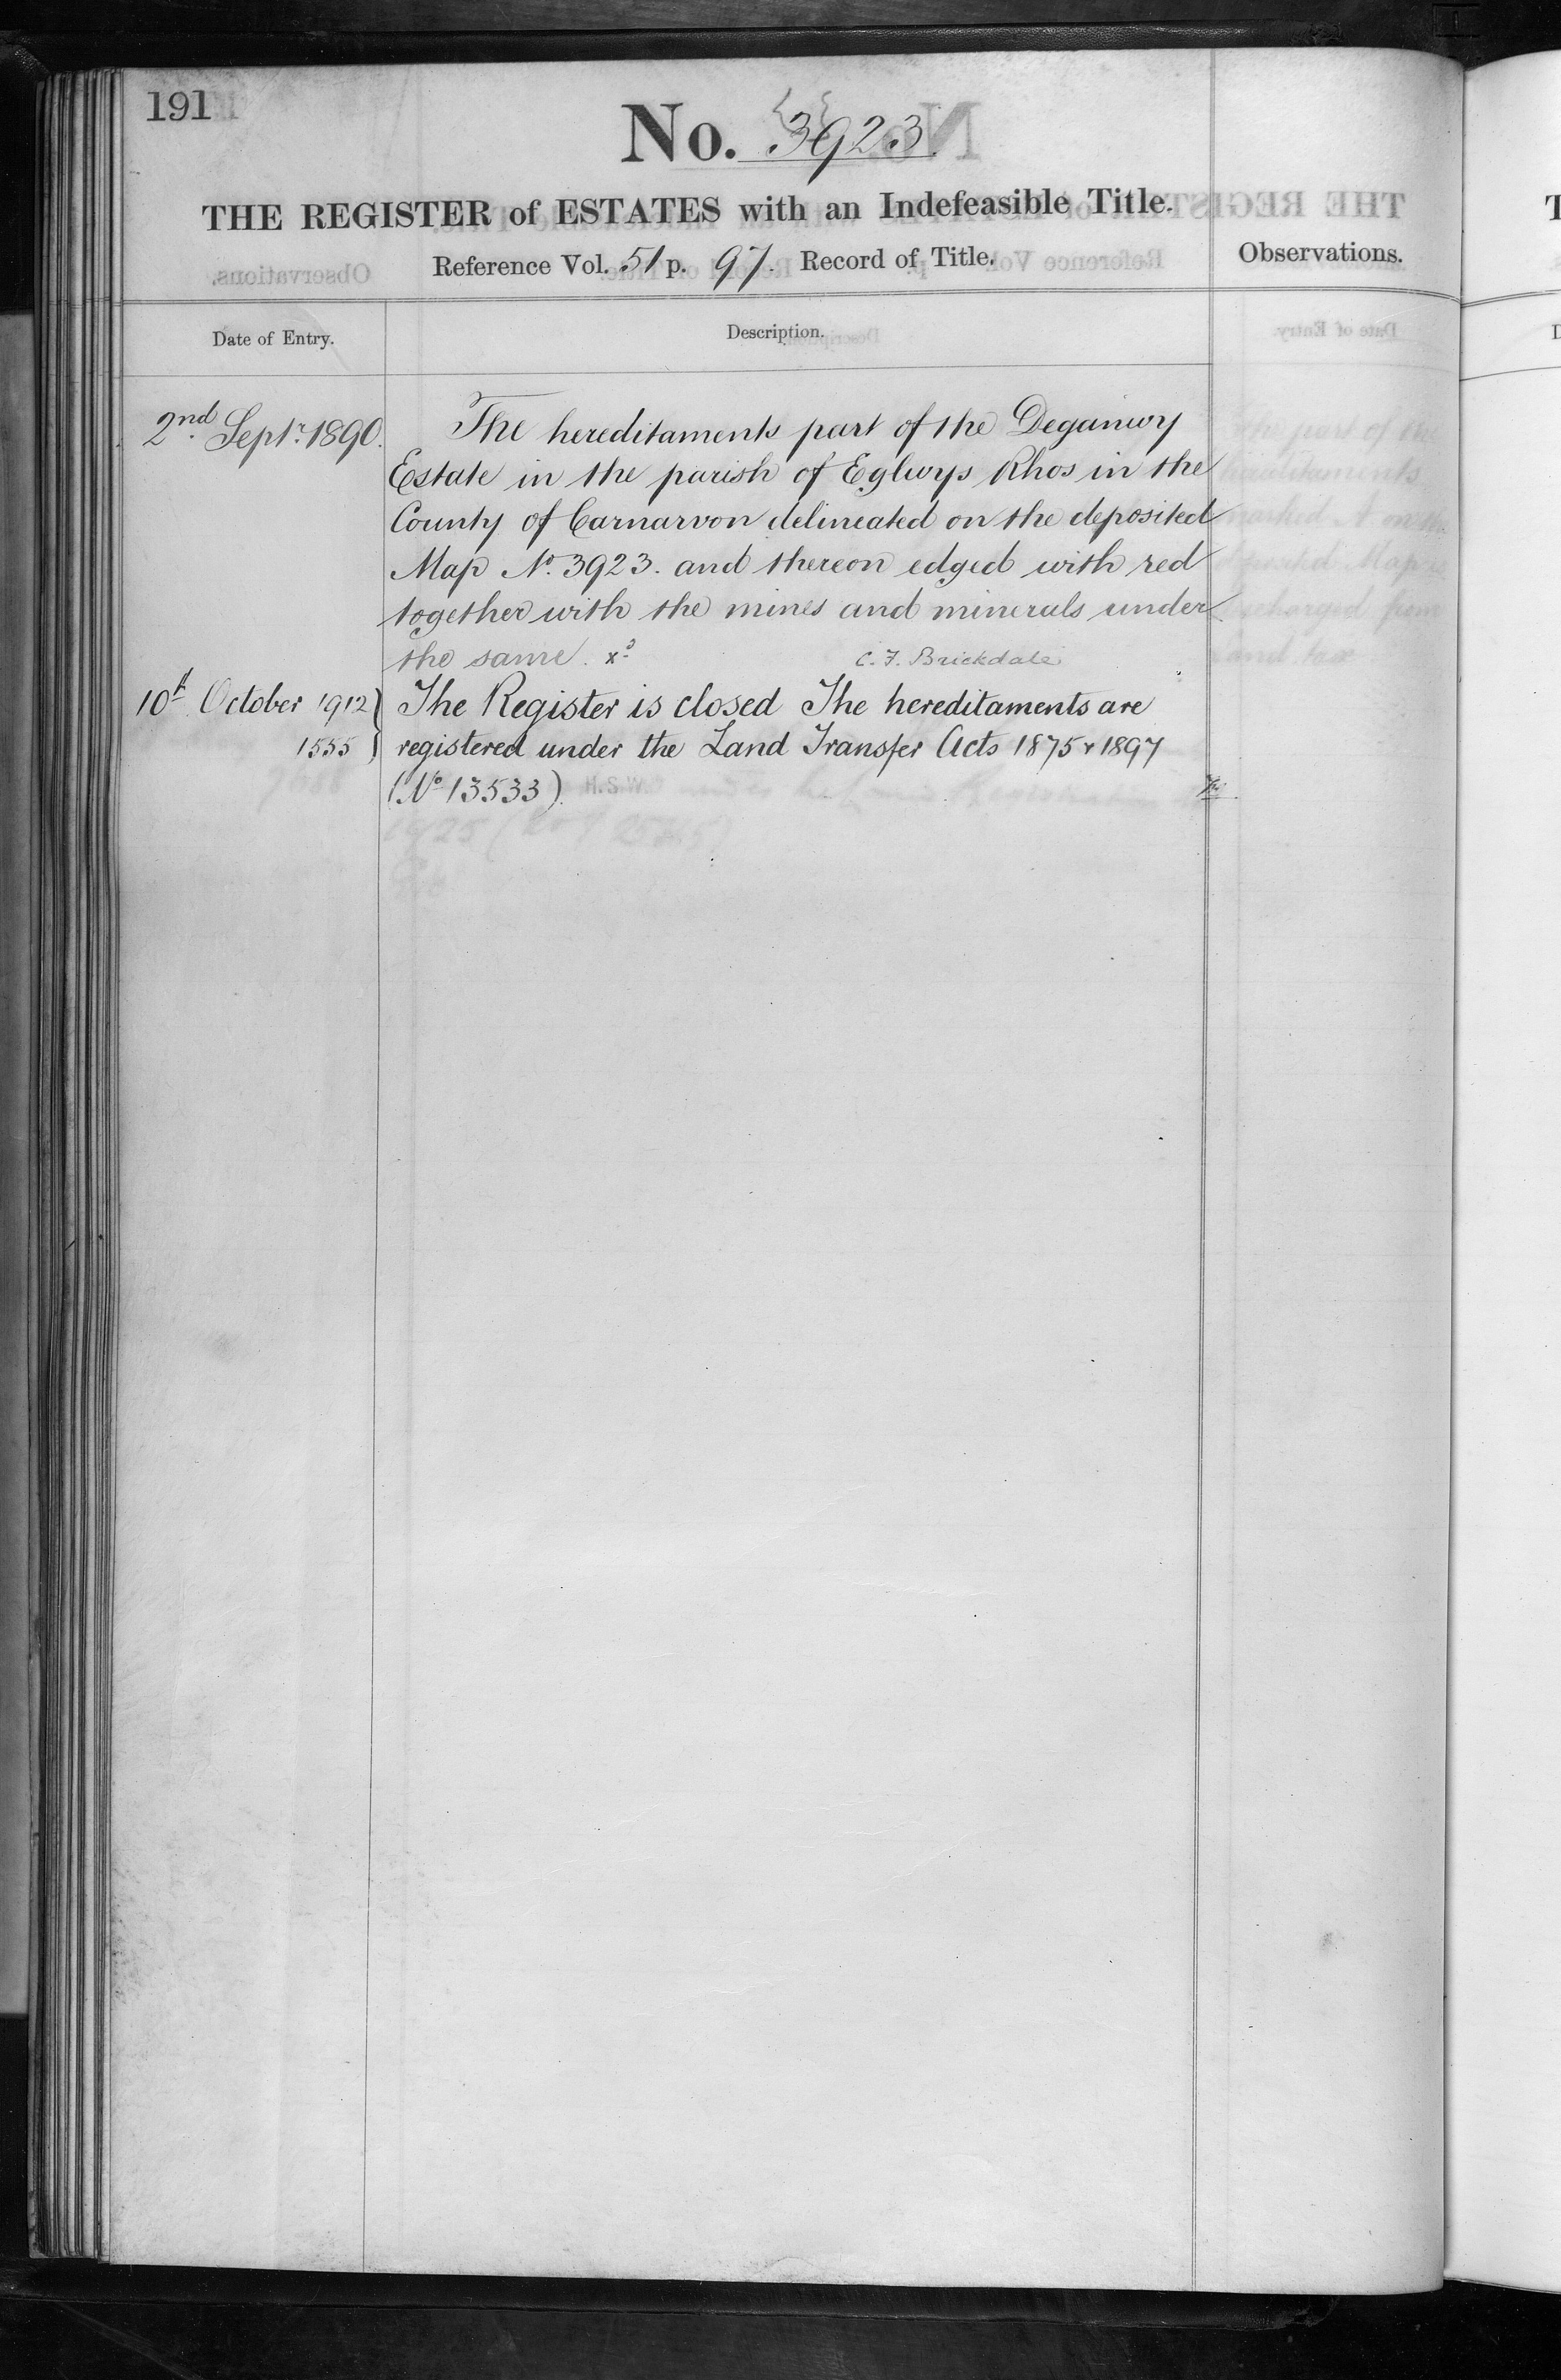 191
No. 3923.
THE REGISTER of ESTATES with an Indefeasible Title.
Reference Vol. 51 p. 97. Record of Title.
Observations.
Date of Entry.
Description.
2nd Septr. 1890.
The hereditaments part of the Deganwy
Estate in the parish of Eglwys Rhos in the
County of Carnarvon delineated on the deposited
Map No. 3923. and thereon edged with red
together with the mines and minerals under
the same.
C. F. Brickdale
10th October 1912
1555
The Register is closed The hereditaments are
registered under the Land Transfer Acts 1875 & 1897
(No 13533). H.S.W.